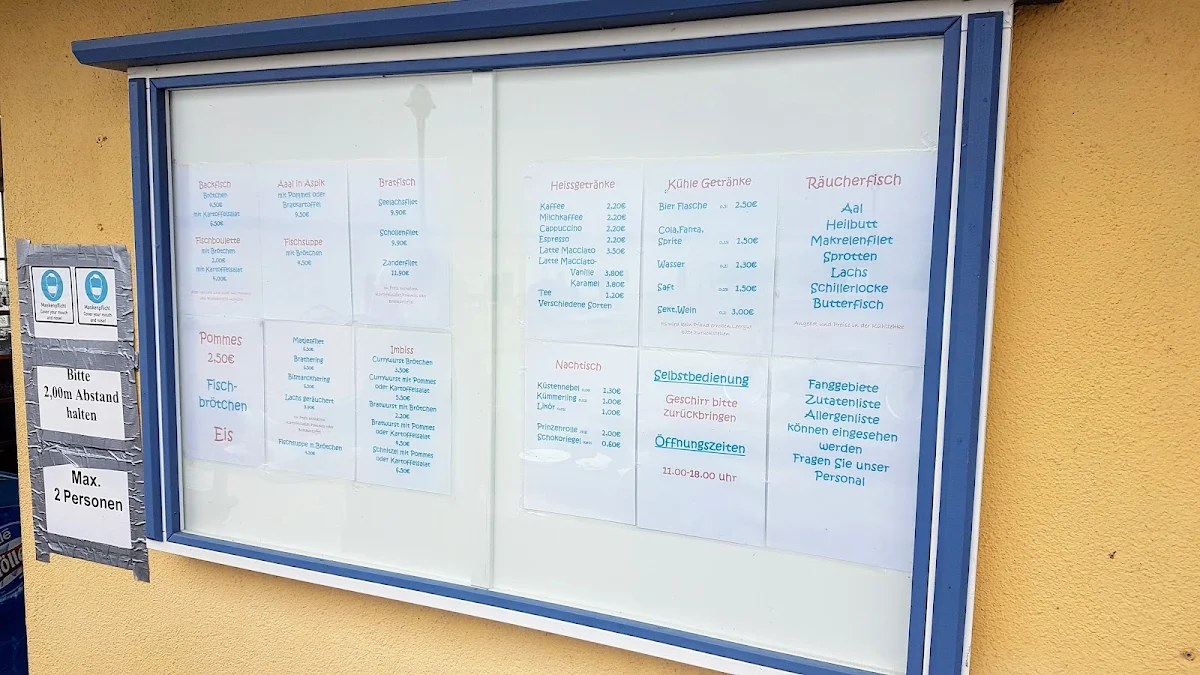 Maskenpflicht
Cover your mouth
and nose!
Maskenpflicht
Cover your mouth
and nose!
Bitte
2,00m Abstand
halten
Max.
2 Personen
Backfisch
Brötchen
mit Kartoffelsalat
6.50€
Fischboulette
mit Brötchen
2,00€
mit Kartoffelsalat
Aaal in Aspik
mit Pommes oder
Bratkartoffel
9.50€
Fischsuppe
mit Brötchen
4.50€
Bratfisch
Seelachsfilet
9,90€
Schollenfilet
9.90€
Zanderfilet
11.90€
Pommes
2,50€
Fisch-
brötchen
Eis
Matjesfilet
Brathering
Bismarckhering
Lachs geräuchert
Fischsuppe m.Brötchen
Imbiss
Currywurst Brötchen
3,50€
Currywurst mit Pommes
oder Kartoffelsalat
5,50€
Bratwurst mit Brötchen
2.20€
Bratwurst mit Pommes
oder Kartoffelsalat
4,50€
Schnitzel mit Pommes
oder Kartoffelsalat
6,50€
Heissgetränke
Kaffee 2,20€
Milchkaffee 2,20€
Cappuccino 2,20€
Espresso 2,20€
Latte Macciato 3,50€
Latte Macciato-
Vanille 3,80€
Karamel 3,80€
Tee 1,20€
Verschiedene Sorten
Kühle Getränke
Bier Flasche 2,50€
Cola,Fanta,
Sprite 1,50€
Wasser 1,30€
Saft 1,50€
Sekt,Wein 3,00€
Räucherfisch
Aal
Heilbutt
Makrelenfilet
Sprotten
Lachs
Schillerlocke
Butterfisch
Angebot und Preise in der Kühltheke
Nachtisch
Küstennebel 1,30€
Kümmerling 1,00€
Likör 1,00€
Prinzenrolle 2,00€
Schokoriegel 0,60€
Selbstbedienung
Geschirr bitte
zurückbringen
Öffnungszeiten
11.00-18.00 uhr
Fanggebiete
Zutatenliste
Allergenliste
können eingesehen
werden
Fragen Sie unser
Personal